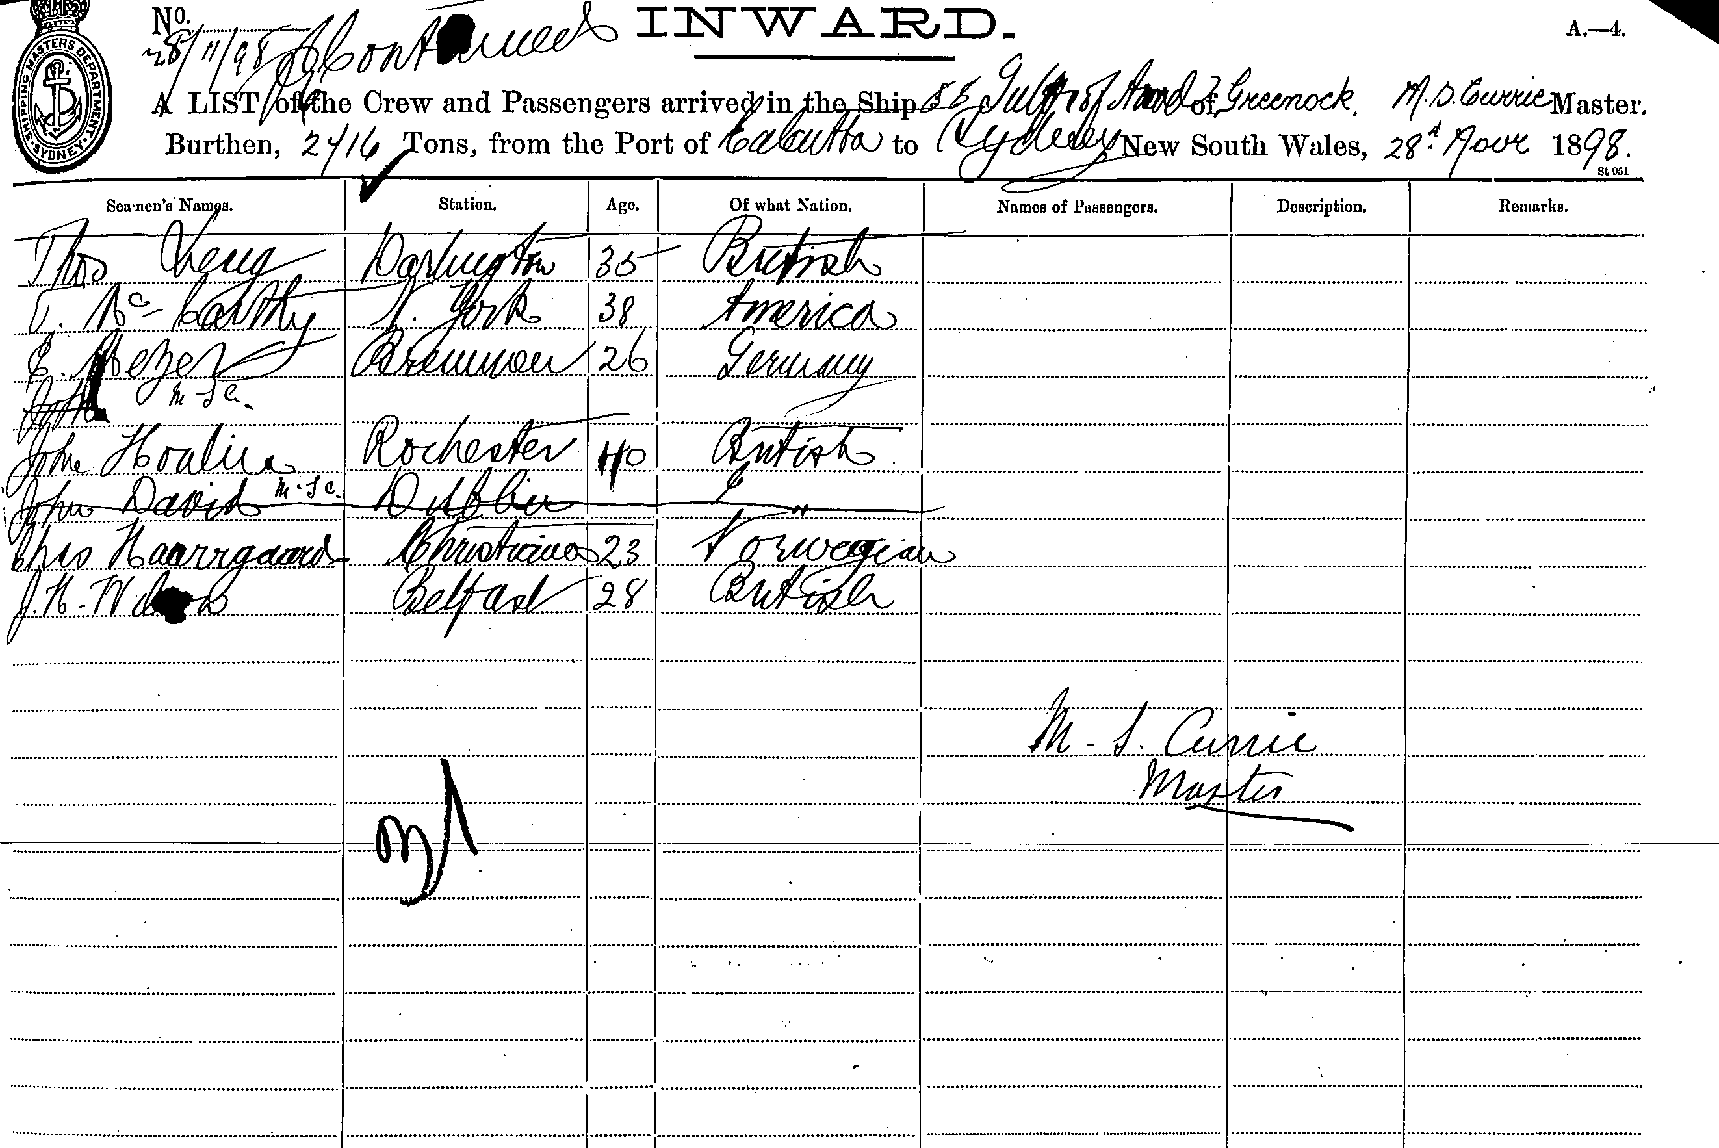 No.
INWARD.
A.—4.
28/11/98 Continued
SHIPPING MASTERS DEPARTMENT SYDNEY
A LIST of the Crew and Passengers arrived in the Ship SS Gulf of of Greenock, M. S. Currie Master.
Burthen, 2416 Tons, from the Port of Calcutta to Sydney New South Wales, 28th Novr 1898.
St 051
Seamen's Names. Station. Age. Of what Nation. Names of Passengers. Description. Remarks.
Thos Darlington 35 British
Mc Carthy N. York 38 America
E. Bremmen 26 Germany
M. S. C.
John Rochester 40 British
John David M. S. C. Dublin "
Chris Haarrgaard Christiania 23 Norwegian
J. H. Belfast 28 British
M. S. Currie
Master